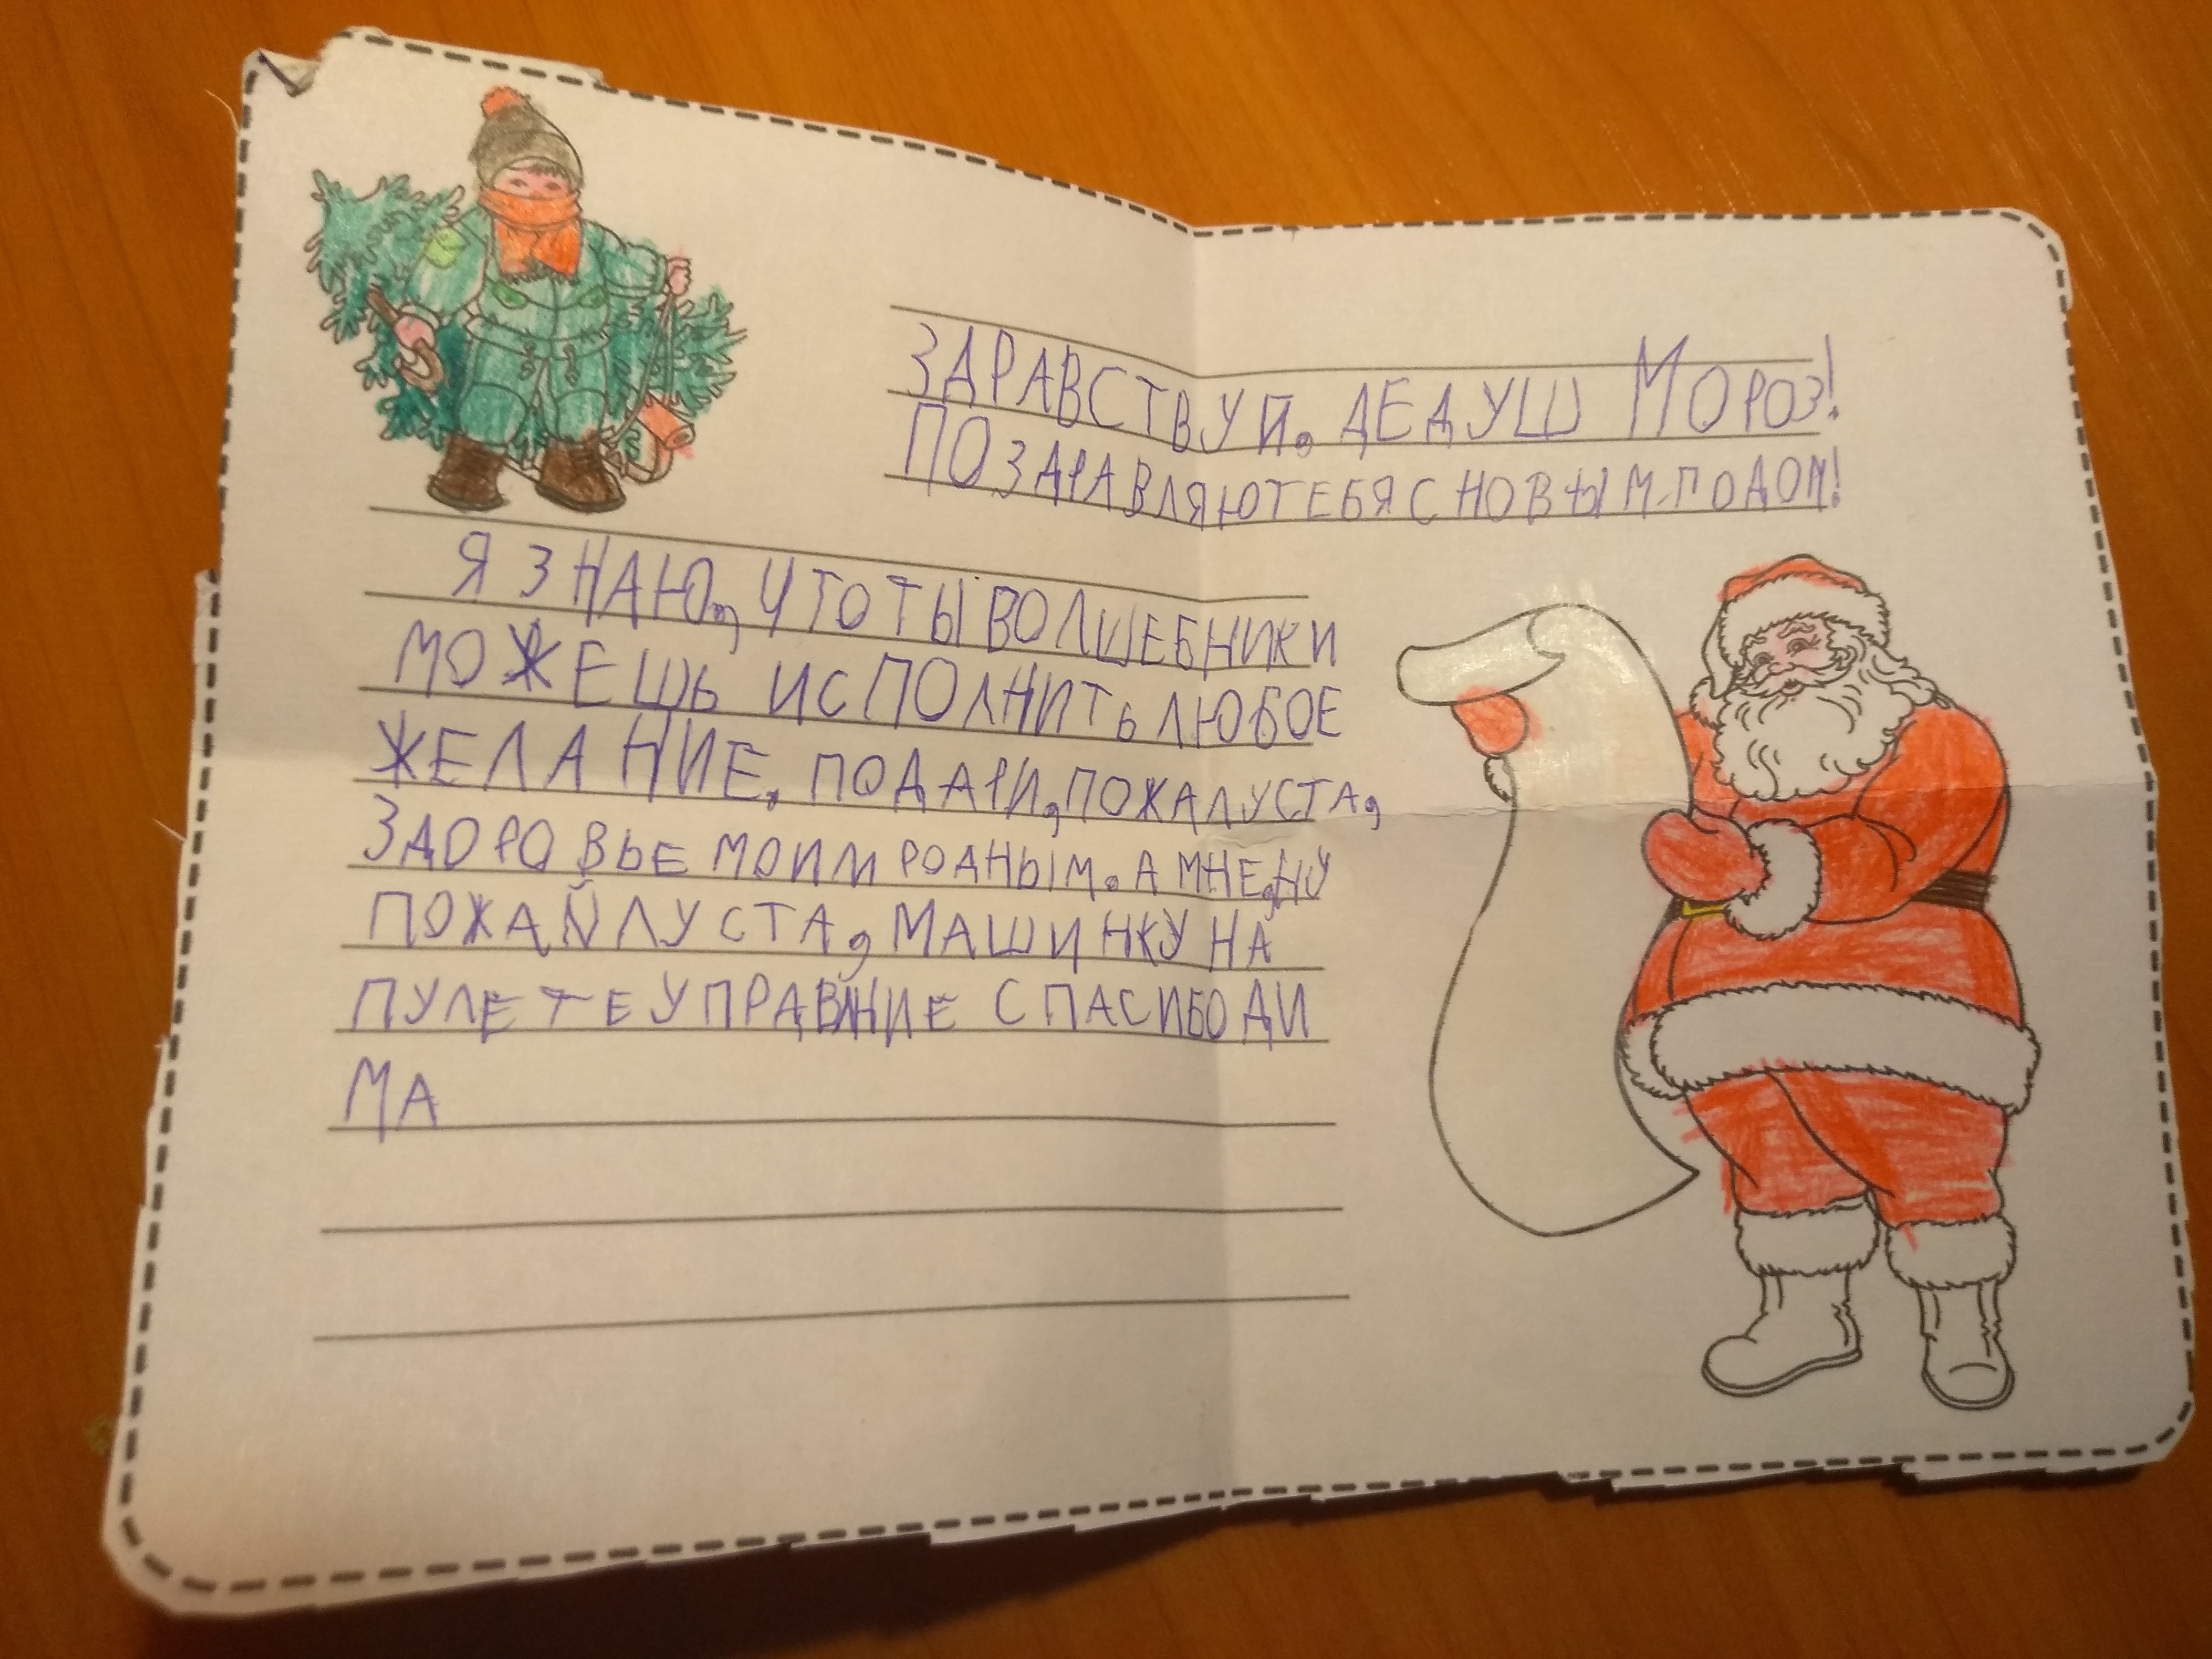 ЗДРАВСТВУЙ. ДЕДУШ МОРОЗ!
ПОЗДРАВЛЯЮТЕБЯ С НОВЫМ ГОДОМ!
Я ЗНАЮ, ЧТО ТЫ ВОЛШЕБНИК И
МОЖЕШЬ ИСПОЛНИТЬ ЛЮБОЕ
ЖЕЛАНИЕ. ПОДАРИ, ПОЖАЛУСТА,
ЗДОРОВЬЕ МОИМ РОДНЫМ. А МНЕ, НУ
ПОЖАЙЛУСТА, МАШИНКУ НА
ПУЛЕТЕ УПРАВНИЕ СПАСИБО ДИ
МА